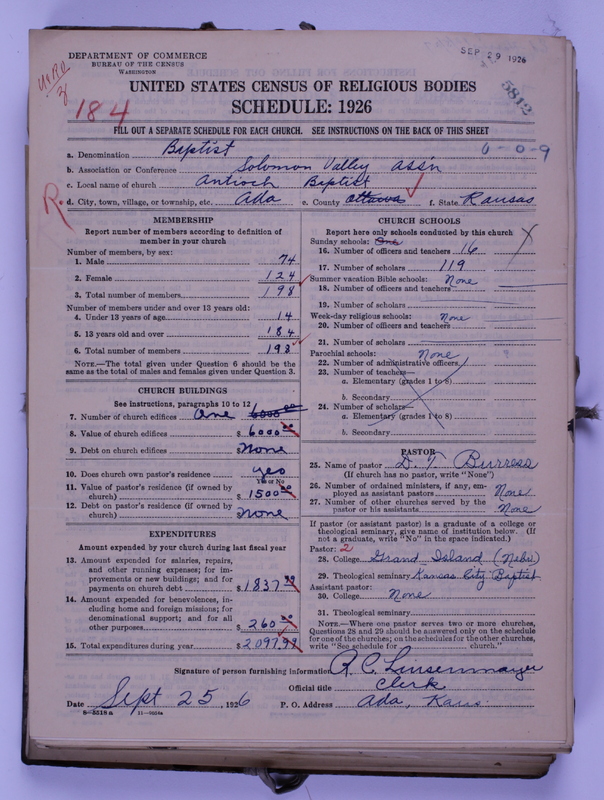 DEPARTMENT OF COMMERCE
BUREAU OF THE CENSUS
WASHINGTON
SEP 29 1926
5812
184
UNITED STATES CENSUS OF RELIGIOUS BODIES
SCHEDULE: 1926
FILL OUT A SEPARATE SCHEDULE FOR EACH CHURCH. SEE INSTRUCTIONS ON THE BACK OF THIS SHEET
a. Denomination Baptist 0-0-9
b. Association or Conference Solomon Valley Ass'n
c. Local name of church Antioch Baptist
d. City, town, village, or township, etc. Ada e. County Ottawa f. State Kansas
R
MEMBERSHIP
Report number of members according to definition of
member in your church
Number of members, by sex:
1. Male 74
2. Female 124
3. Total number of members 198
Number of members under and over 13 years old:
4. Under 13 years of age 14
5. 13 years old and over 184
6. Total number of members 198
NOTE.—The total given under Question 6 should be the
same as the total of males and females given under Question 3.
CHURCH BUILDINGS
See instructions, paragraphs 10 to 12
7. Number of church edifices One 6000 00
8. Value of church edifices $ 6000 00
9. Debt on church edifices $ None
10. Does church own pastor's residence yes
Yes or No
11. Value of pastor's residence (if owned by
church) $ 1500 00
12. Debt on pastor's residence (if owned by
church) $ None
EXPENDITURES
Amount expended by your church during last fiscal year
13. Amount expended for salaries, repairs,
and other running expenses; for im-
provements or new buildings; and for
payments on church debt $ 1837 99
14. Amount expended for benevolences, in-
cluding home and foreign missions; for
denominational support; and for all
other purposes $ 260 00
15. Total expenditures during year $ 2097.99
CHURCH SCHOOLS
Report here only schools conducted by this church
Sunday schools: One
16. Number of officers and teachers 16
17. Number of scholars 119
Summer vacation Bible schools: None
18. Number of officers and teachers
19. Number of scholars
Week-day religious schools: None
20. Number of officers and teachers
21. Number of scholars
Parochial schools: None
22. Number of administrative officers
23. Number of teachers—
a. Elementary (grades 1 to 8)
b. Secondary
24. Number of scholars—
a. Elementary (grades 1 to 8)
b. Secondary
PASTOR
25. Name of pastor D. T. Burress
(If church has no pastor, write "None")
26. Number of ordained ministers, if any, em-
ployed as assistant pastors None
27. Number of other churches served by the
pastor or his assistants None
If pastor (or assistant pastor) is a graduate of a college or
theological seminary, give name of institution below. (If
not a graduate, write "No" in the space indicated.)
Pastor: 2
28. College Grand Island (Nebr)
29. Theological seminary Kansas City Baptist
Assistant pastor:
30. College None
31. Theological seminary
NOTE.—Where one pastor serves two or more churches,
Questions 28 and 29 should be answered only on the schedule
for one of the churches; on the schedules for the other churches,
write "See schedule for church."
Signature of person furnishing information R. C. Linsenmayer
Official title Clerk
Date Sept 25, 1926 P. O. Address Ada, Kans.
8-5518a 11-9036a